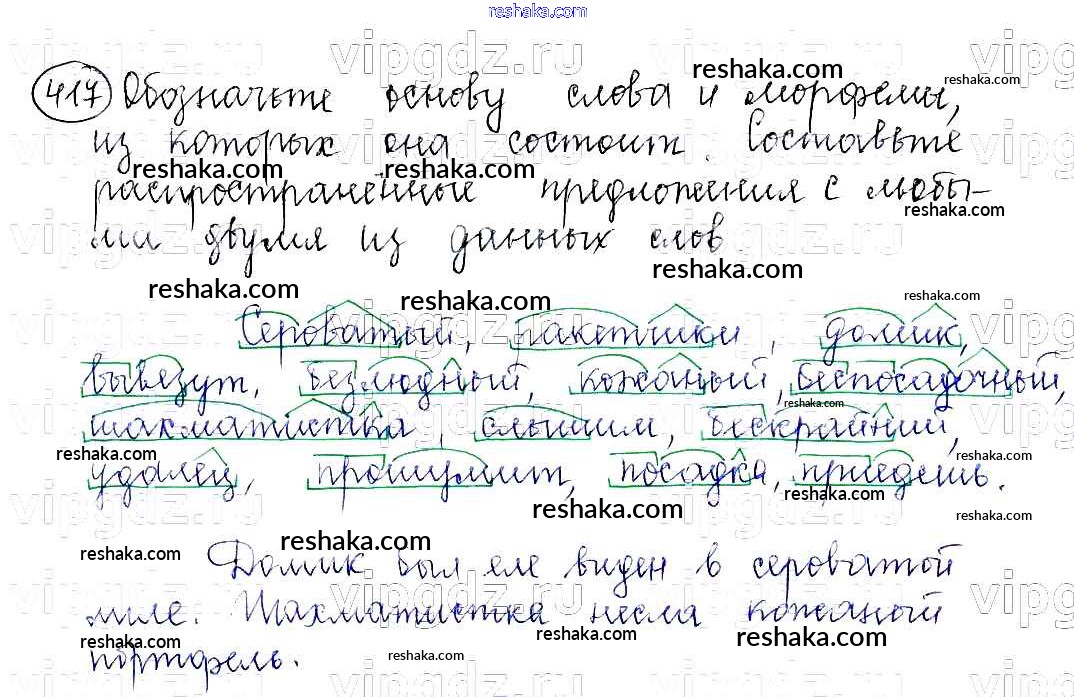 reshaka.com
417 Обозначьте основу слова и морфемы,
из которых она состоит. Составьте
распространённые предложения с любы-
ми двумя из данных слов
Сероватый, ракетчики, домик,
вывезут, безлюдный, кожаный, беспосадочный,
шахматистка, слышим, бескрайний,
удалец, прошумит, посадка, приедешь.
Домик был еле виден в сероватой
мгле. Шахматистка несла кожаный
портфель.